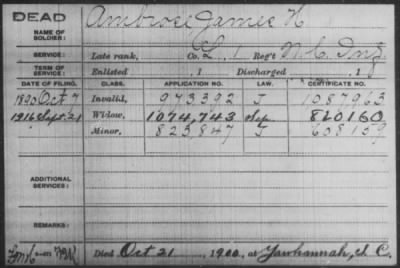 DEAD
NAME OF SOLDIER: Ambrose, Jamie H
SERVICE: Late rank, Co. L, 1 Reg't N.C. Inf.
TERM OF SERVICE: Enlisted , 1 Discharged , 1
DATE OF FILING. CLASS. APPLICATION NO. LAW. CERTIFICATE NO.
1890 Oct 7 Invalid, 973,392 J 1087963
1916 Sept. 21 Widow, 1074,743 Sep 820160
Minor, 823,847 J 608159
ADDITIONAL SERVICES:
REMARKS:
Died Oct 21, 1900, at Yawhannah, S. C.